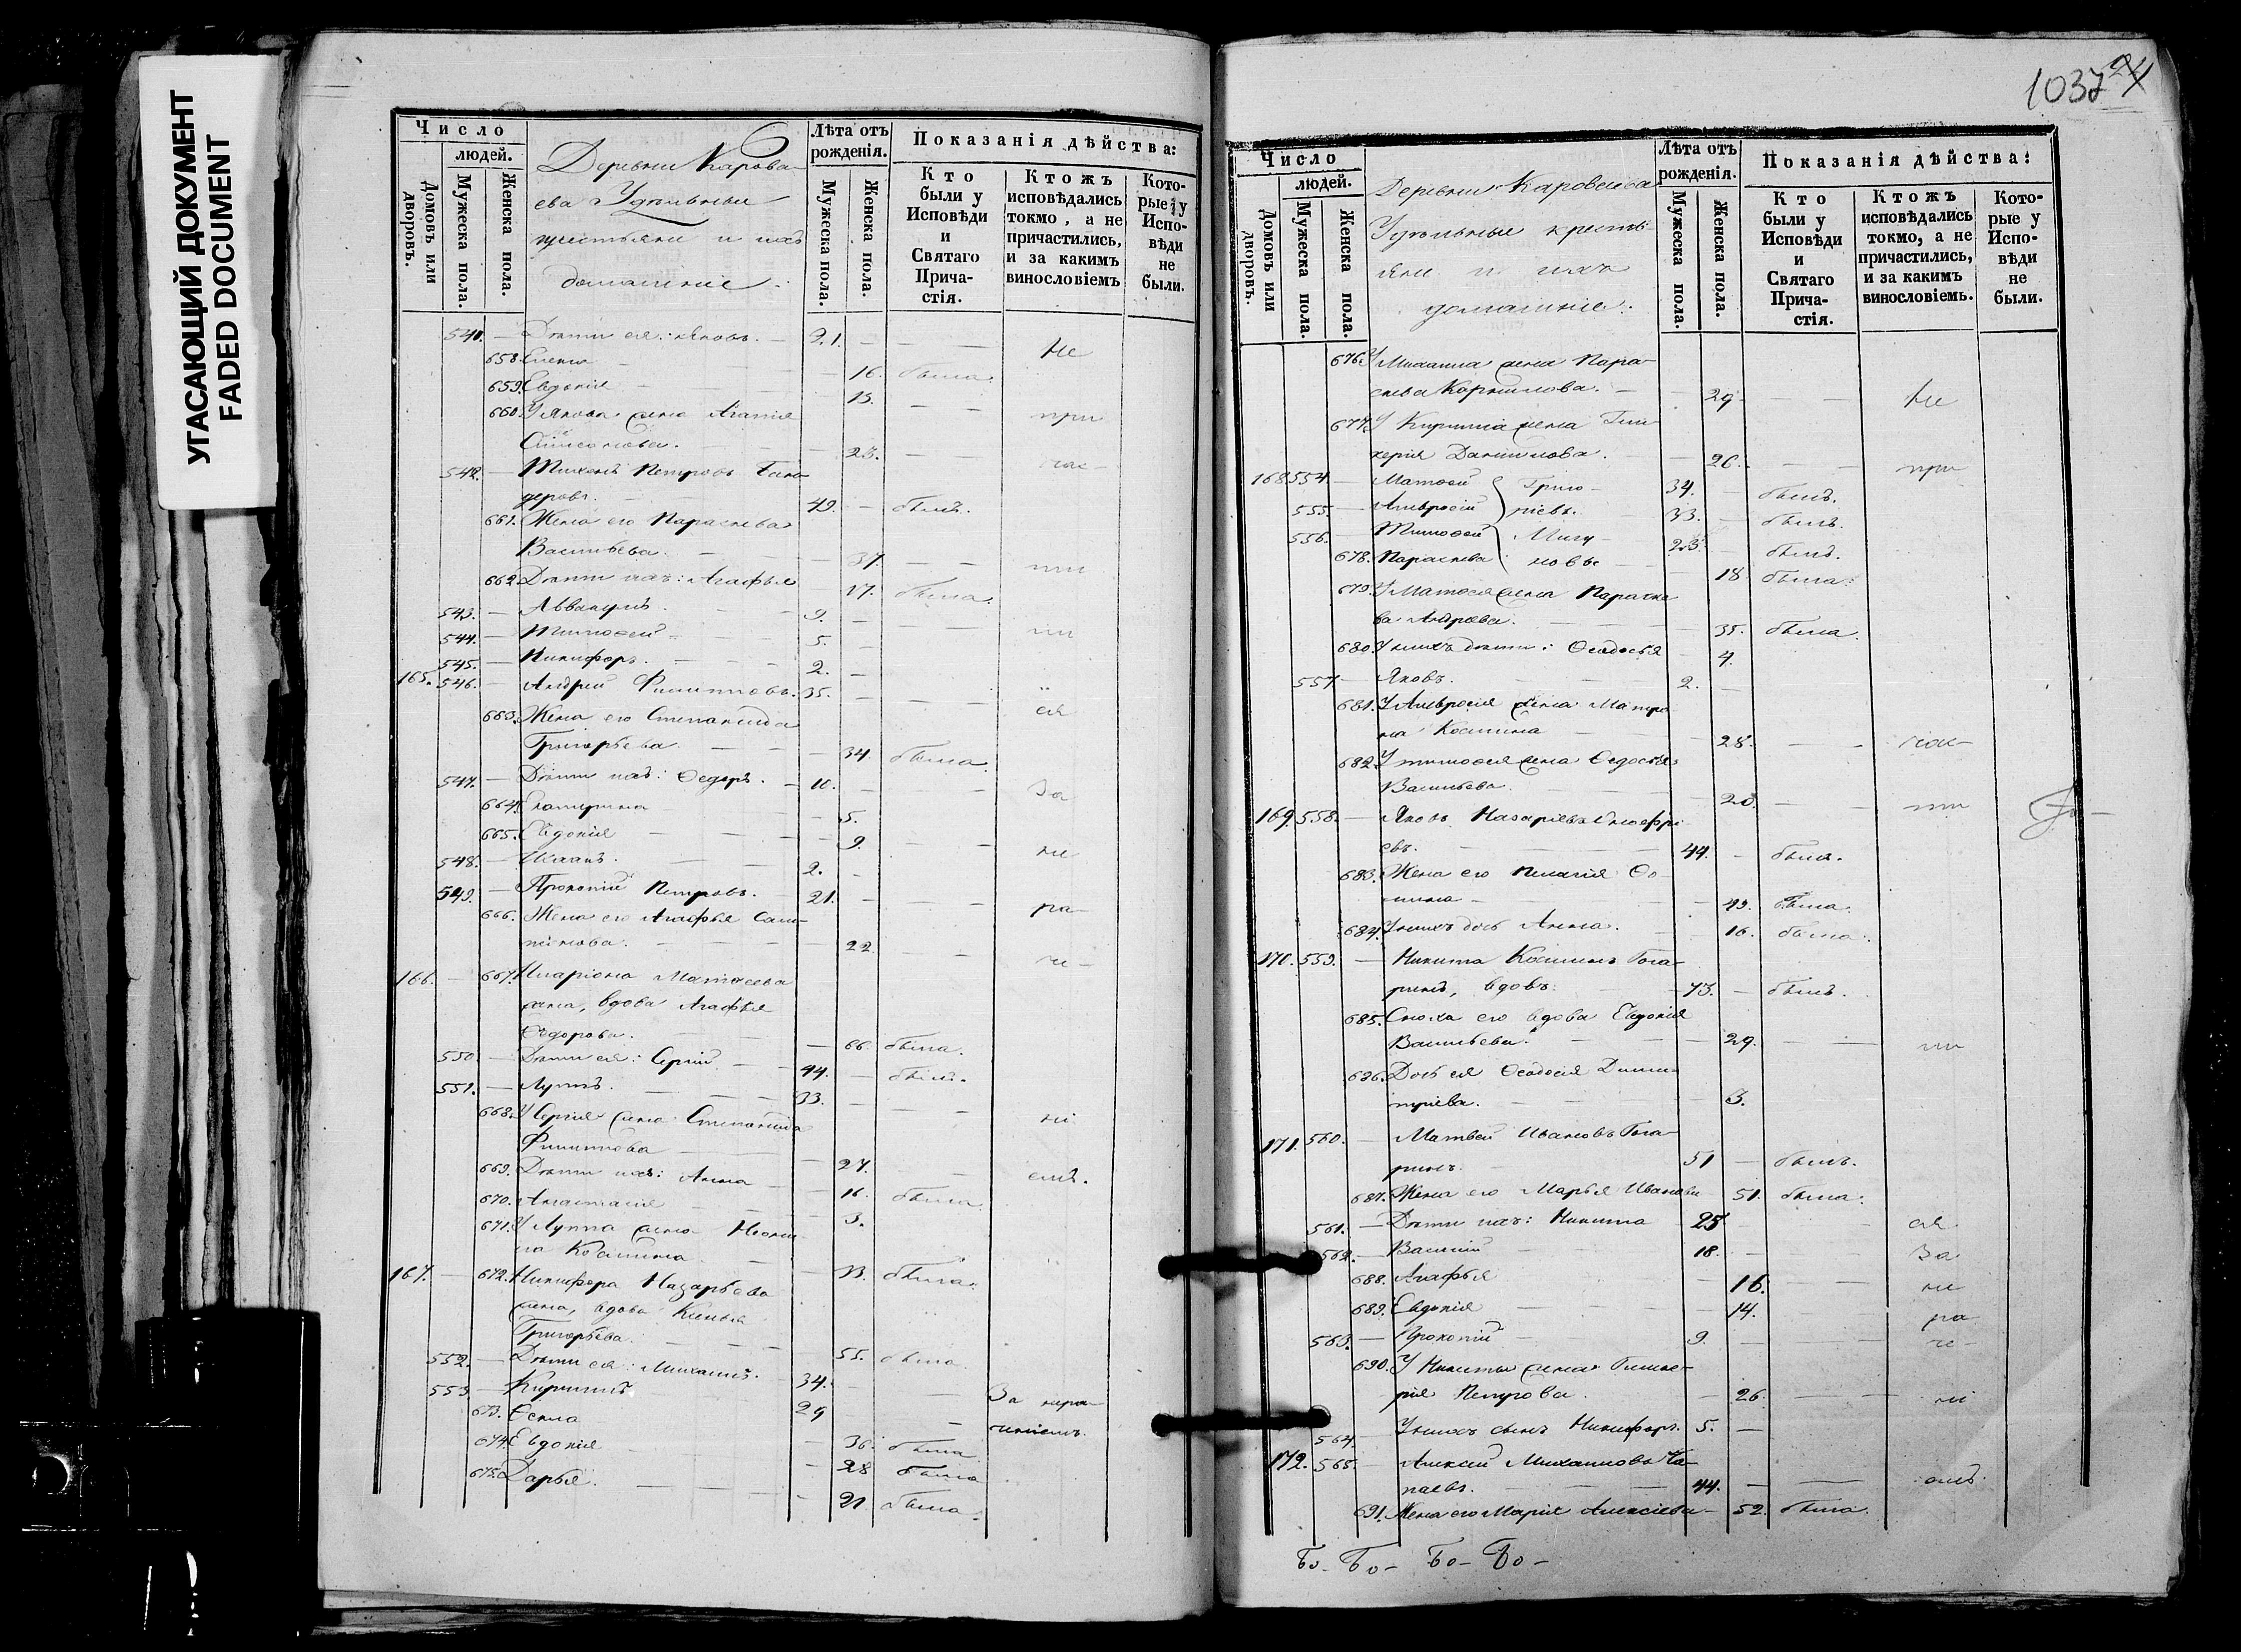 УГАСАЮЩИЙ ДОКУМЕНТ
FADED DOCUMENT
Число
людей.
Домовъ или дворовъ.
Мужеска пола.
Женска пола.
Деревни Карова-
ева Удѣльные
крестьяне и ихъ
домашніе.
Лѣта отъ рожденія.
Мужеска пола.
Женска пола.
Показанія дѣйства:
Кто были у Исповѣди и Святаго Причастія.
Ктожъ исповѣдались токмо, а не причастились, и за какимъ винословіемъ
Которые у Исповѣди не были.
541. — Дѣти ея: Яковъ. — 21. — — — Не
658. Елена — — 16. была.
659. Евдокія — — 13. — —
660. У Якова жена Агапія при
Симеонова. — 23. — —
542. — Тихонъ Петровъ час-
деровъ. 49. — былъ.
661. Жена его Параскева
Васильева. — — 37. — — ти
662. Дѣти ихъ: Агафья 17. была.
543. — Аввакумъ. — 9. —
544. — Тимоѳей — 5. — ли
545. — Никифоръ. — 2. —
165. 546. — Андрей Филипповъ. 35. — — —
663. Жена его Степанида ся
Григорьева. — — — 34. была.
547. — Дѣти ихъ: Ѳедоръ. — 10. — — — За
664. Екатерина — — 5.
665. Евдокія — — — 9. — — не
548. — Исаакъ. — — 2. —
549. — Прокопій Петровъ. — 21. — — — ра
666. Жена его Агафья Сам-
псонова. — — — 22. — — че-
166. — 667. Иларіона Матѳеева
жена, вдова Агафья
Ѳедорова. — — 66. была.
550. — Дѣти ея: Сергій — — 44. — былъ.
551. — Луппъ. — — — 33. — — —
668. У Сергія жена Степанида ні
Филиппова — — 27. —
669. Дѣти ихъ: Анна — — 16. была емъ.
670. Анастасія — — — 3.
671. У Луппа жена Неони-
ла Косьмина — — 33. была.
167. — 672. Никифора Назарьева
жена, вдова Ксенья
Григорьева. — — 55. была
552. — Дѣти ея: Михаилъ. — 34. — — За нера-
553. — Кириллъ. 29 — ченіемъ.
673. Ѳекла — 36. была
674. Евдокія — 28 была
675. Дарья. — — — — 21. была.
103724
Число
людей.
Домовъ или дворовъ.
Мужеска пола.
Женска пола.
Деревни Кароваева
Удѣльные кресть-
яне и ихъ
домашніе.
Лѣта отъ рожденія.
Мужеска пола.
Женска пола.
Показанія дѣйства:
Кто были у Исповѣди и Святаго Причастія.
Ктожъ исповѣдались токмо, а не причастились, и за какимъ винословіемъ.
Которые у Исповѣди не были.
676. У Михаила жена Пара-
скева Корнилова. — — 29. — — Не
677. У Кирилла жена Гли-
керія Данилова. — — 26. — — при
168. 554. — Матѳей Григо- 34. — былъ.
555. — Амвросій ріевъ. 33. — былъ.
556. — Тимоѳей 23. — былъ.
678. Параскева 18. была.
679. У Матѳея жена Параске-
ва — — 35. была.
680. У нихъ дѣти: Ѳеодосья — 4.
557. — Яковъ. — — 2. —
681. У Амвросія жена Матро-
на Косьмина — — 28. — — час-
682. У Тимоѳея жена Ѳедосья
Васильева. — — 20. — — ти
169. 558. — Яковъ Назарьевъ Онофрі-
евъ. — — 44. — былъ.
683. Жена его Пелагія Ѳо-
мина — — 43. была.
684. У нихъ дочь Анна. — 16. была.
170. 559. — Никита Косминъ Гога-
ринъ, вдовъ. — 73. — былъ.
685. Сноха его вдова Евдокія
Васильева. — — — 29. — — ли
686. Дочь ея Ѳеодосія Дими-
тріева. — — — 3.
171. 560. — Матвей Ивановъ Гога-
ринъ. — 51 — былъ.
687. Жена его Марья Иванова 51. была.
561. — Дѣти ихъ: Никита 25 — — ся
562. — Василій — 18. — — За
688. Агафья — — 16. — — не
689. Евдокія — — — 14. ра
563. — Прокопій — 9. — — че-
690. У Никиты жена Глике-
рія Петрова. — — 26. — — ні
564. — У нихъ сынъ Никифоръ. 5. —
172. 565. — Алексей Михаиловъ Ча-
паевъ. — — 44. — — емъ
691. Жена его Марія Алексіева — 52. была.
Бо- Бо- Бо- Бо-